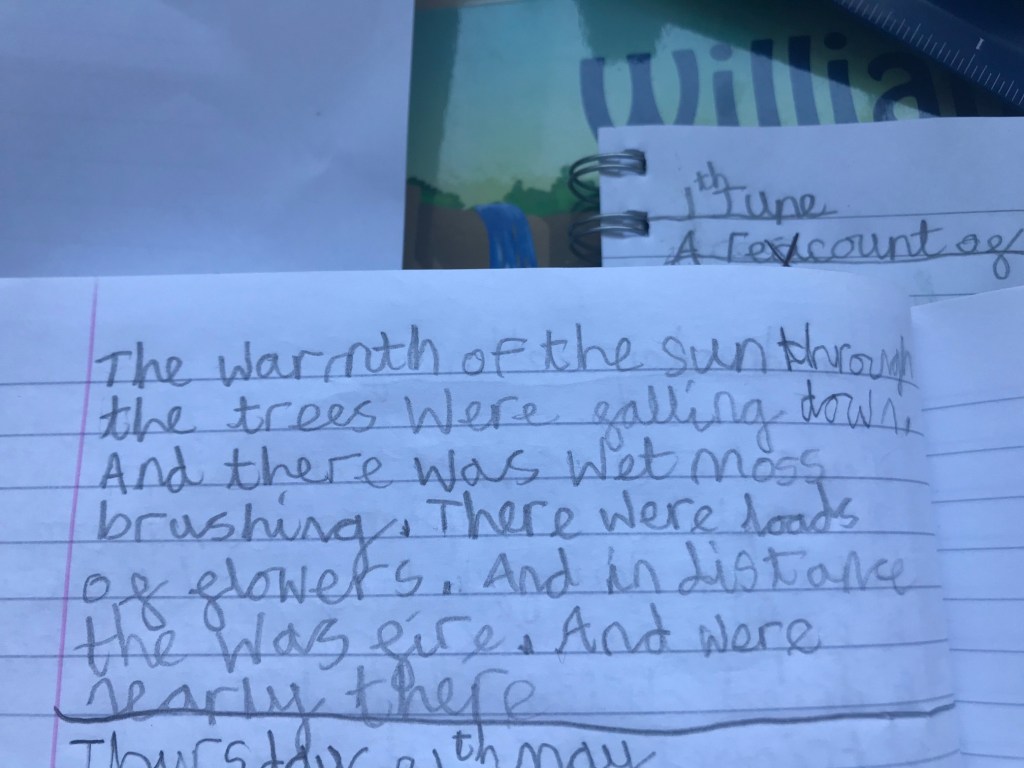 Willia
1th June
A recount of
The warmth of the sun through
the trees were falling down.
And there was wet moss
brushing. There were loads
of flowers. And in distance
the was fire. And were
nearly there
Thursday th may